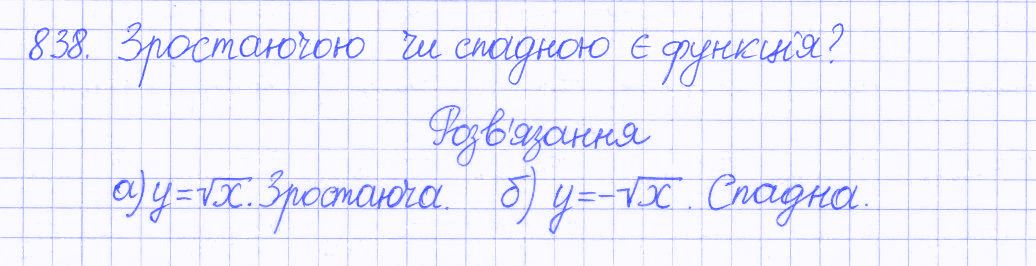 838. Зростаючою чи спадною є функція?
Розв'язання
а) y=√x. Зростаюча. б) y=-√x. Спадна.